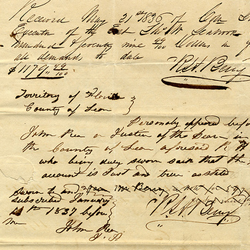 Received May 21st 1836 of
Executor of the Est
hundred & seventy nine 99/100 Dollars in
all demands to date
$1179 99/100
R H Berry
Territory of Florida
County of Leon
Personally appeared before
John Rea a Justice of the Peace in
the County of Leon aforesaid R H
who being duly sworn said that th
account is just and true as stated
Sworn to and
subscribed January
1837 before
me
R H Berry
John Rea
J. P.